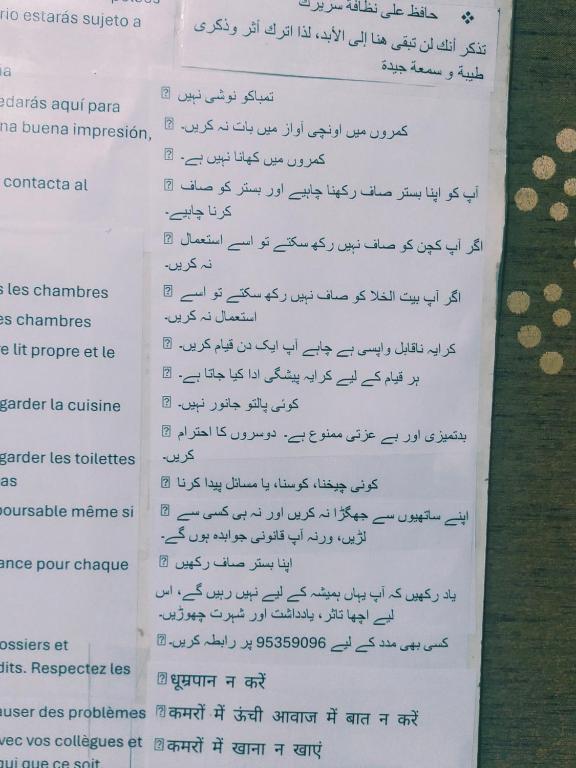 rio estarás sujeto a
edarás aquí para
na buena impresión,
contacta al
s les chambres
es chambres
e lit propre et le
garder la cuisine
garder les toilettes
as
boursable même si
ance pour chaque
ossiers et
dits. Respectez les
auser des problèmes
vec vos collègues et
❖ حافظ على نظافة سريرك
تذكر أنك لن تبقى هنا إلى الأبد، لذا اترك أثر وذكرى
طيبة و سمعة جيدة
تمباکو نوشی نہیں
کمروں میں اونچی آواز میں بات نہ کریں۔
کمروں میں کھانا نہیں ہے۔
آپ کو اپنا بستر صاف رکھنا چاہیے اور بستر کو صاف
کرنا چاہیے۔
اگر آپ کچن کو صاف نہیں رکھ سکتے تو اسے استعمال
نہ کریں۔
اگر آپ بیت الخلا کو صاف نہیں رکھ سکتے تو اسے
استعمال نہ کریں۔
کرایہ ناقابل واپسی ہے چاہے آپ ایک دن قیام کریں۔
ہر قیام کے لیے کرایہ پیشگی ادا کیا جاتا ہے۔
کوئی پالتو جانور نہیں۔
بدتمیزی اور بے عزتی ممنوع ہے۔ دوسروں کا احترام
کریں۔
کوئی چیخنا، کوسنا، یا مسائل پیدا کرنا
اپنے ساتھیوں سے جھگڑا نہ کریں اور نہ ہی کسی سے
لڑیں، ورنہ آپ قانونی جوابدہ ہوں گے۔
اپنا بستر صاف رکھیں
یاد رکھیں کہ آپ یہاں ہمیشہ کے لیے نہیں رہیں گے، اس
لیے اچھا تاثر، یادداشت اور شہرت چھوڑیں۔
کسی بھی مدد کے لیے 95359096 پر رابطہ کریں۔
धूम्रपान न करें
कमरों में ऊंची आवाज में बात न करें
कमरों में खाना न खाएं